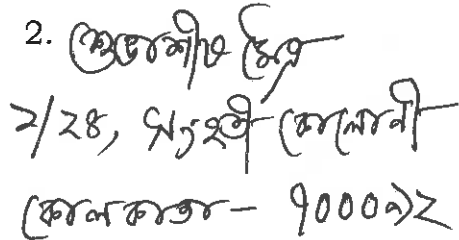 2. শুভাশীষ মৈত্র
২/২৪, সংহতী কোলোনী
কোলকাতা - ৭০০০৯২